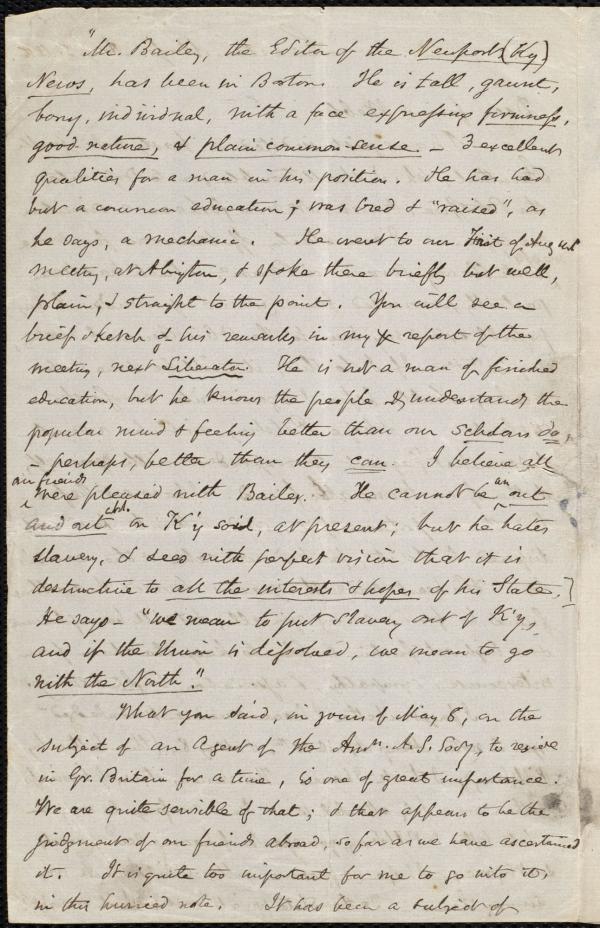 "Mr. Bailey, the Editor of the Newport (Ky.)
News, has been in Boston. He is tall, gaunt,
bony, individual, with a face expressing firmness,
good-nature, & plain common-sense – 3 excellent
qualities for a man in his position. He has had
but a common education; was bred & "raised", as
he says, a mechanic. He went to our First of August
meeting, at Abington, & spoke there briefly but well,
plain, & straight to the point. You will see a
brief sketch of his remarks in my report of the
meeting, next Liberator. He is not a man of finished
education, but he knows the people & understands the
popular mind & feeling better than our scholars do,
– perhaps, better than they can. I believe all
our friends
were pleased with Bailey. He cannot be an out
and out abol. on K'y soil, at present; but he hates
slavery, & sees with perfect vision that it is
destructive to all the interests & hopes of his State.]
He says – "we mean to put slavery out of K'y,
and if the Union is dissolved, we mean to go
with the North."
What you said, in yours of May 6, on the
subject of an Agent of the Amn. A. S. Socy, to reside
in Gr. Britain for a time, is one of great importance.
We are quite sensible of that; & that appears to be the
judgment of our friends abroad, so far as we have ascertained
it. It is quite too important for me to go into it,
in this hurried note. It has been a subject of